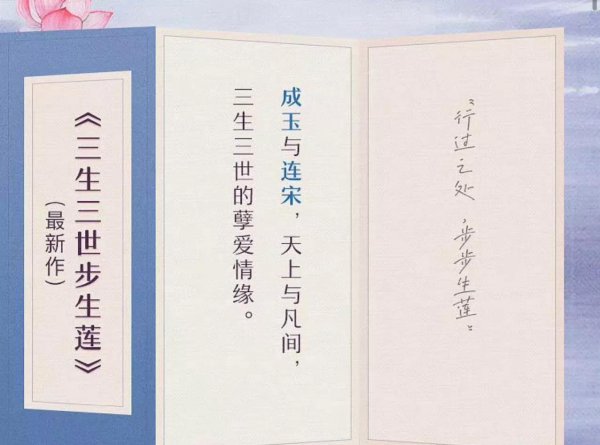 《三生三世步生莲》
（最新作）
成玉与连宋，天上与凡间，
三生三世的孽爱情缘。
“行过之处，步步生莲。”